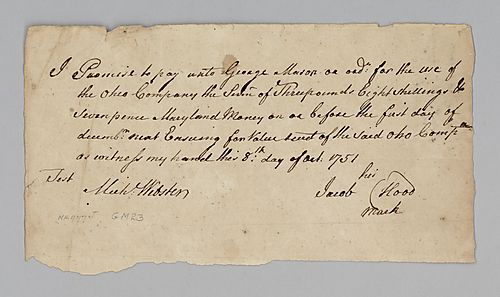 I Promise to pay unto George Mason or ordr. for the use of
the Oheo Company the Sum of Threepounds Eight Shillings &
Sevenpence Maryland Money on or before the first day of
decembr. next Ensuing for Value recd of the said Oho Compa
as witness my hand this 8th day of Oct. 1751
Test his
Michl. Webster Jacob Hood
mark
GMR3